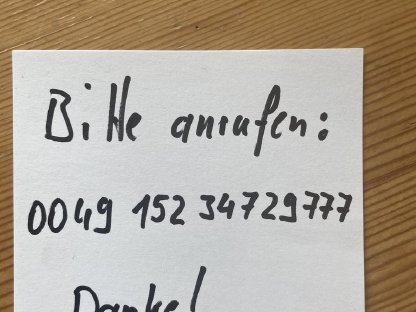 Bitte anrufen:
0049 152 34729777
Danke!